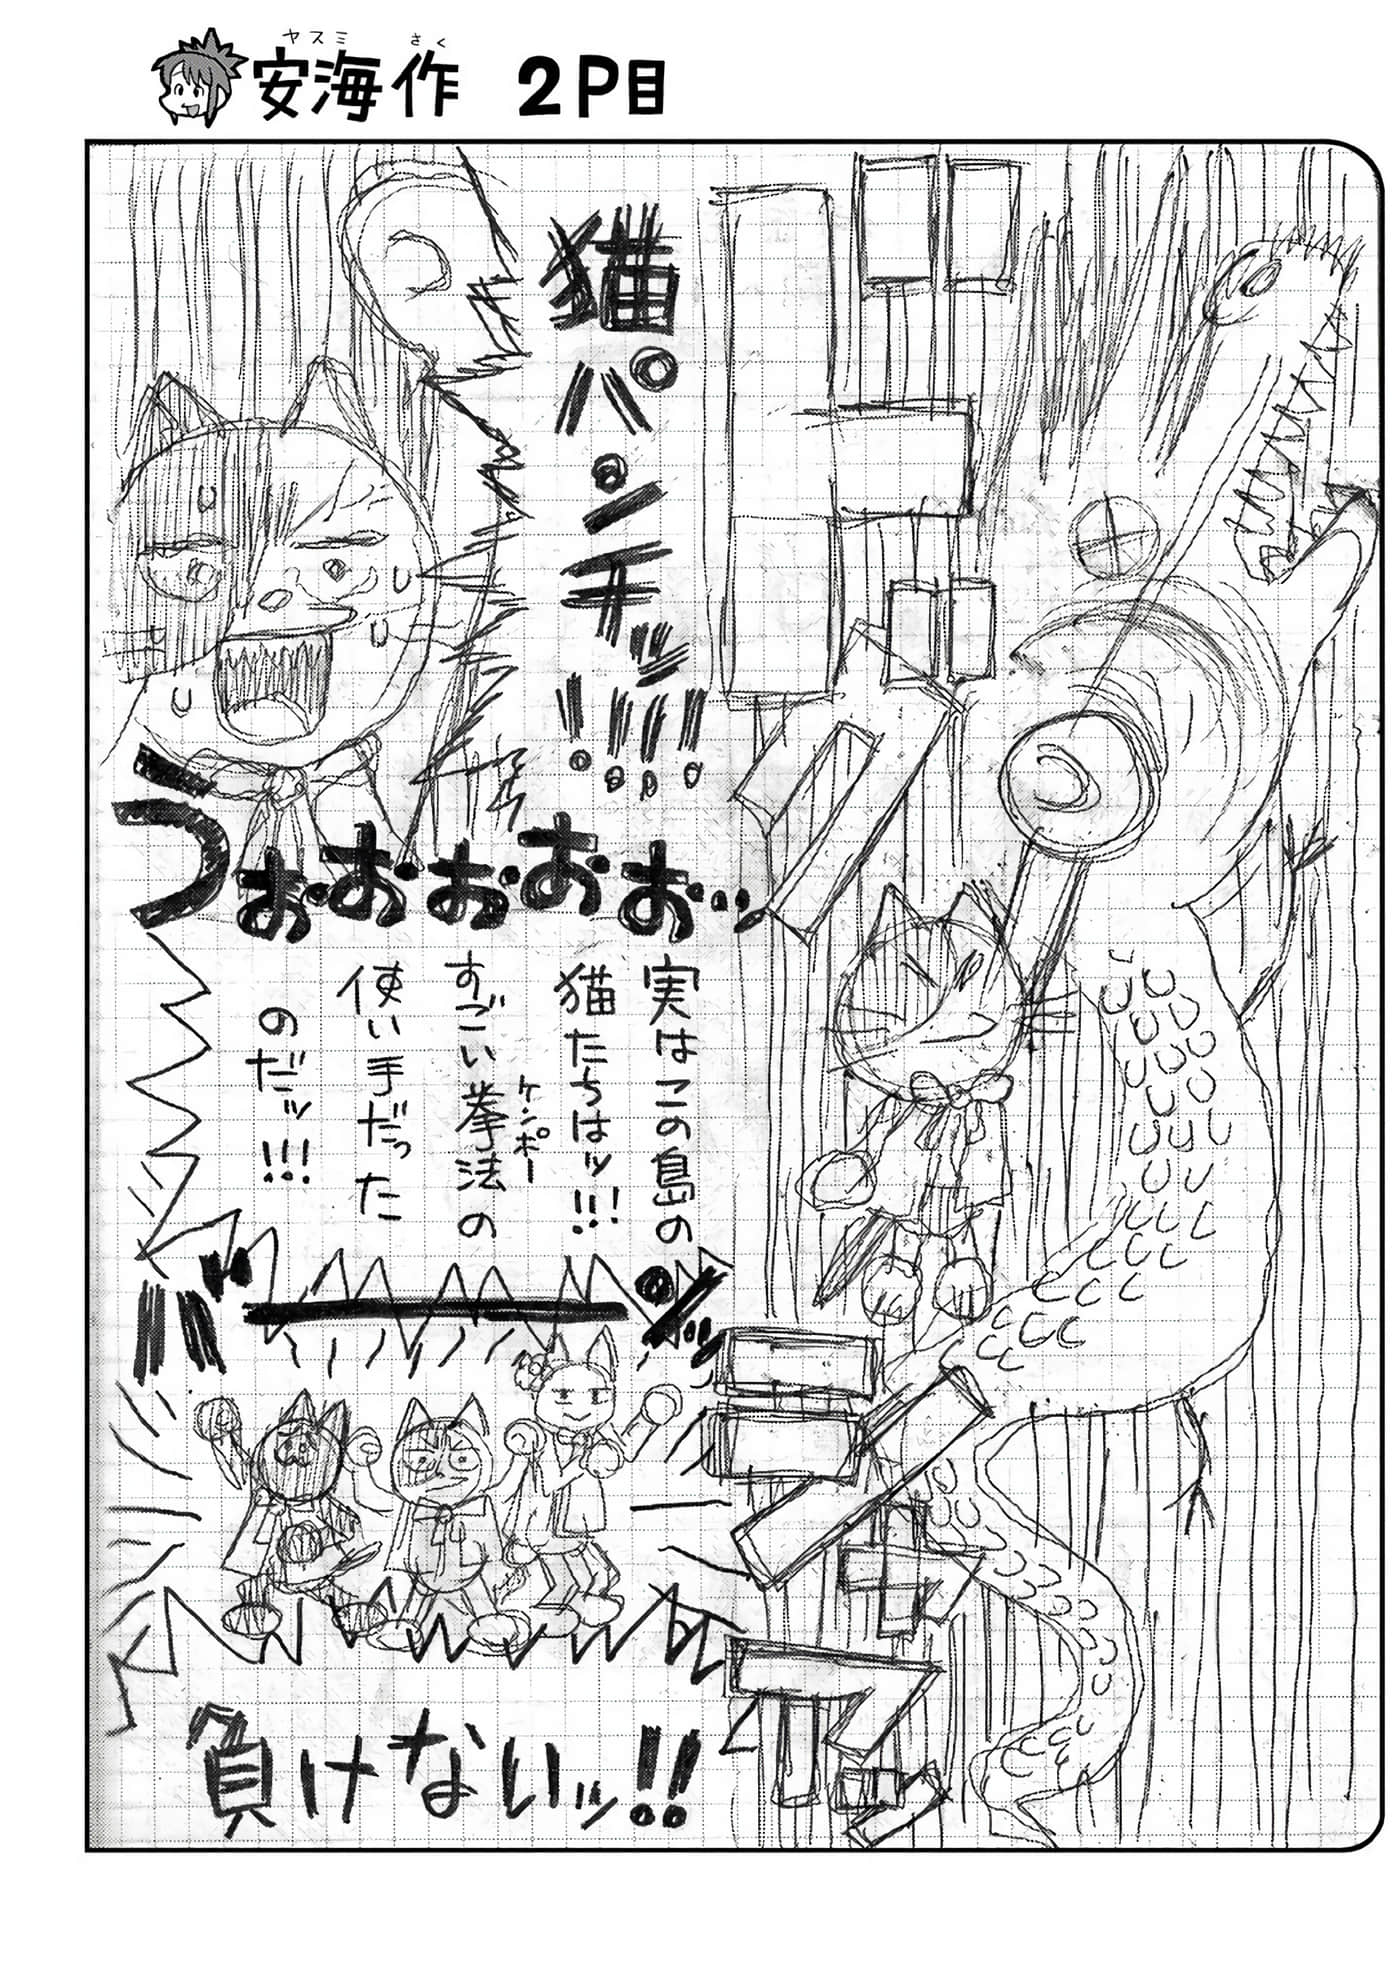 ヤスミ さく
安海 作 2P目
バゴーン
猫パンチッ!!!!
うおおおおおッ…
実はこの島の
猫たちはッ!!!
すごい拳法の
ケンポー
使い手だった
のだッ!!!
バーーンッ
負けないッ!!